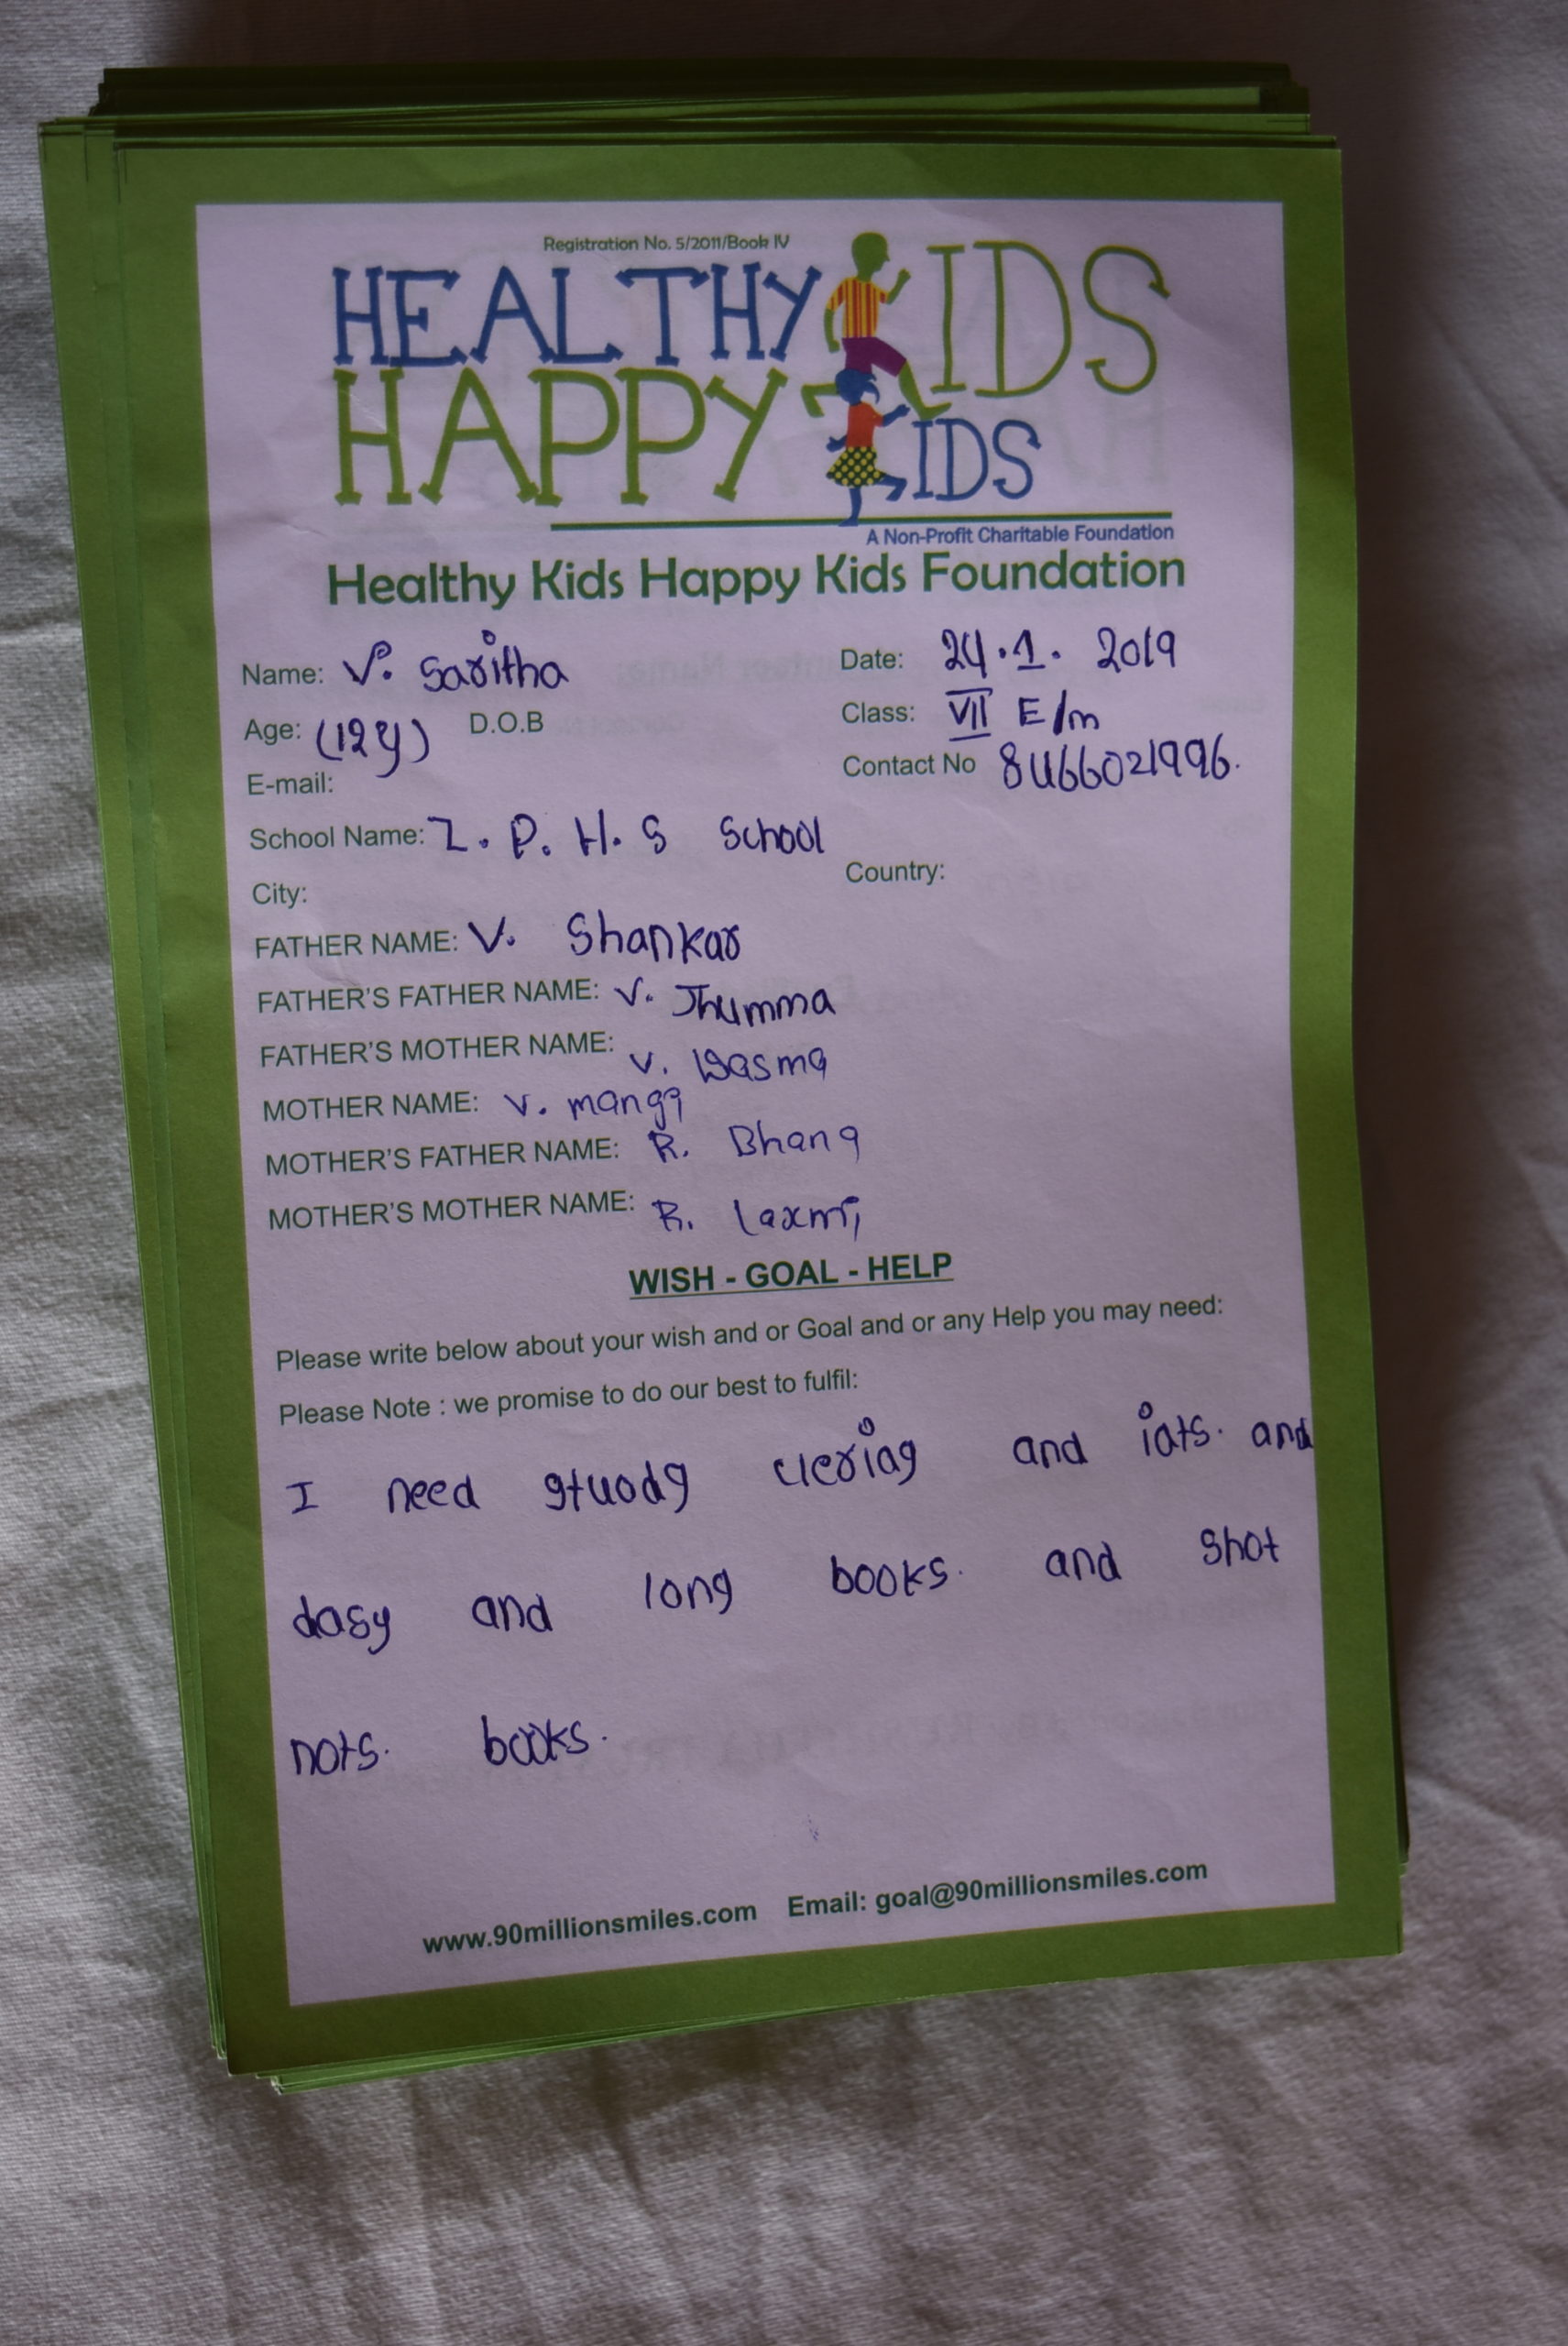 Registration No. 5/2011/Book IV
HEALTHY KIDS
HAPPY KIDS
A Non-Profit Charitable Foundation
Healthy Kids Happy Kids Foundation
Name: V. Saritha Date: 24.1. 2019
Age: (12y) D.O.B Class: VII E/m
E-mail: Contact No 8466021996.
School Name: Z. P. H. S School
City: Country:
FATHER NAME: V. Shankar
FATHER'S FATHER NAME: V. Jhumma
FATHER'S MOTHER NAME: V. Wasma
MOTHER NAME: V. manga
MOTHER'S FATHER NAME: R. Bhana
MOTHER'S MOTHER NAME: R. Laxmi
WISH - GOAL - HELP
Please write below about your wish and or Goal and or any Help you may need:
Please Note : we promise to do our best to fulfil:
I need and and
dasy and long books. and shot
nots. books.
www.90millionsmiles.com Email: goal@90millionsmiles.com